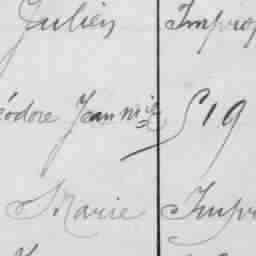 Julien Improp
éodore Jeann 519
Marie Impr